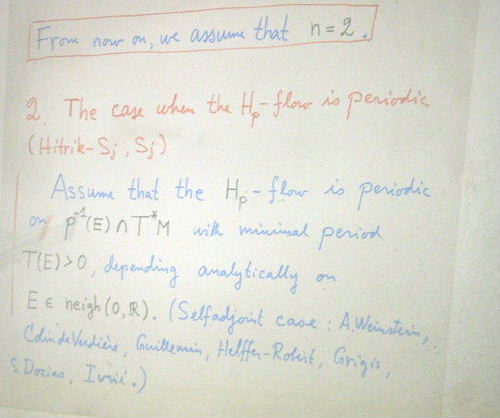 From now on, we assume that n = 2.
2. The case when the Hp-flow is periodic
(Hitrik-Sj, Sj)
Assume that the Hp-flow is periodic
on p⁻¹(E) ∩ T*M with minimal period
T(E) > 0, depending analytically on
E ∈ neigh(0, ℝ). (Selfadjoint case : A. Weinstein,
Colin de Verdière, Guillemin, Helffer-Robert, Grigis,
S. Dozias, Ivrii.)